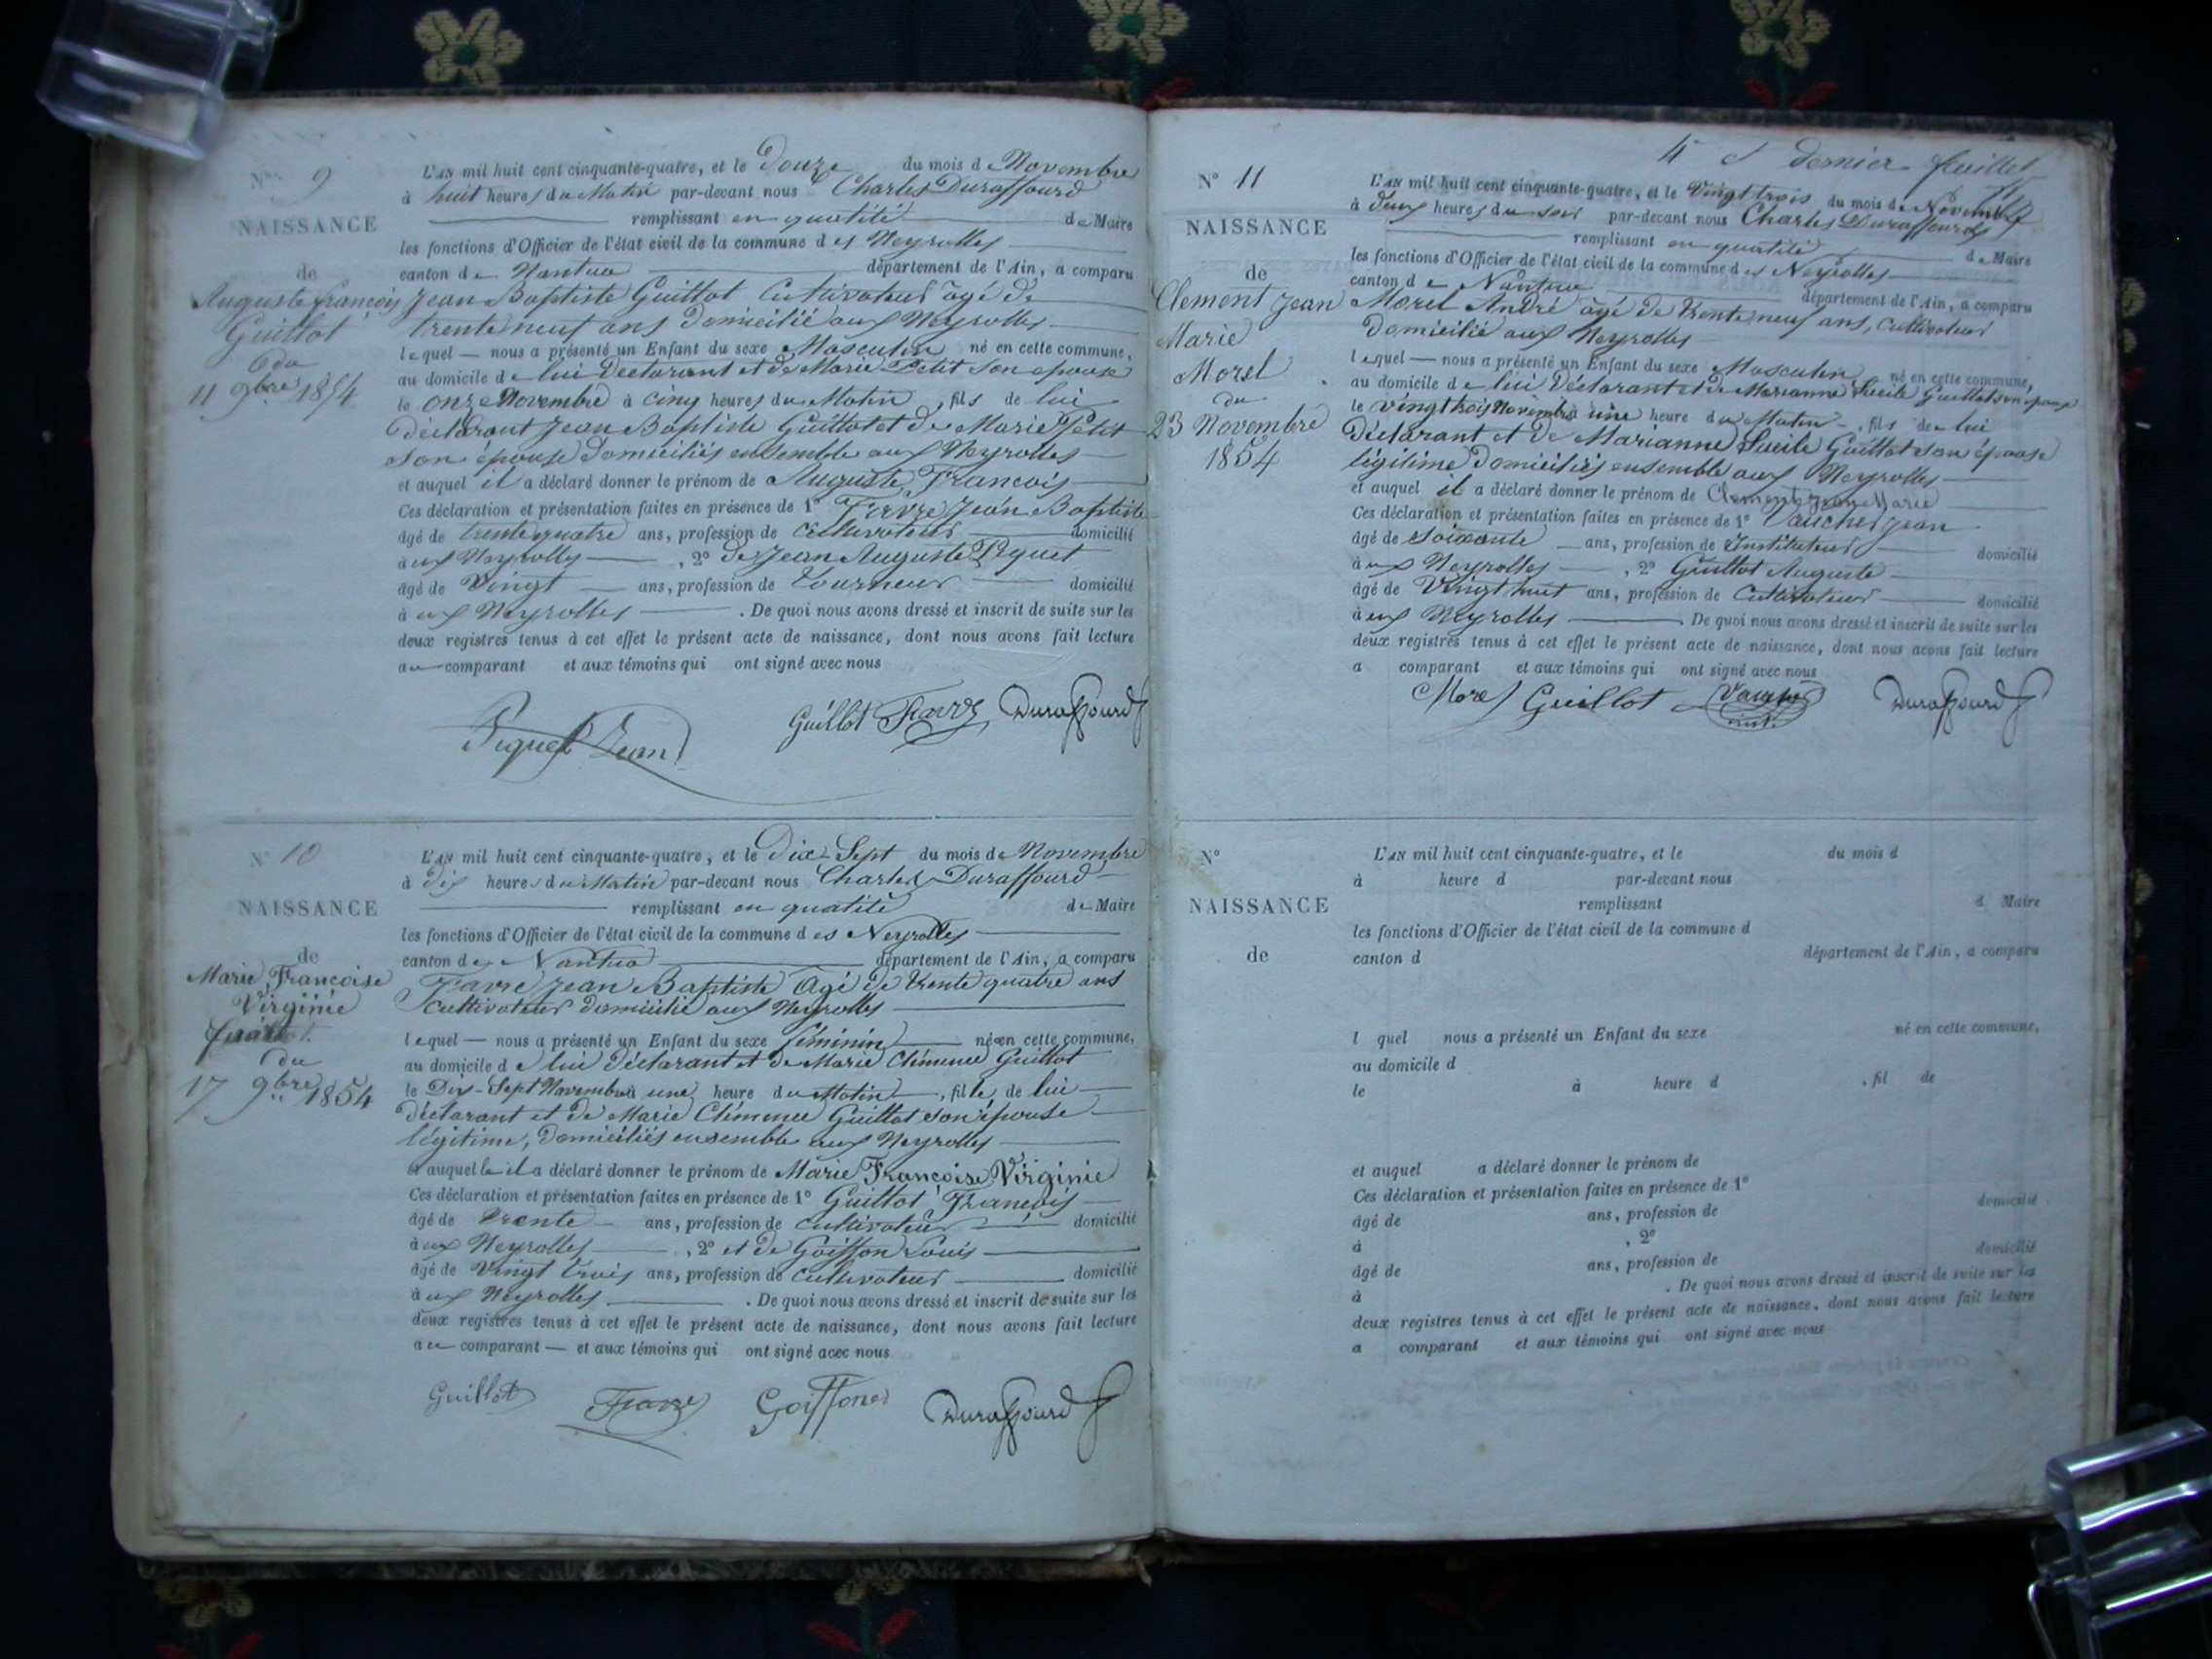 N° 9
NAISSANCE
de
Auguste françois
Guillot
du
11 9bre 1854
L'AN mil huit cent cinquante-quatre, et le Douze du mois de Novembre
à huit heures du Matin par-devant nous Charles Duraffourd
remplissant en qualité de Maire
les fonctions d'Officier de l'état civil de la commune des Neyrolles
canton de Nantua département de l'Ain, a comparu
Jean Baptiste Guillot Cultivateur âgé de
trente neuf ans domicilié aux Neyrolles
lequel nous a présenté un Enfant du sexe Masculin né en cette commune,
au domicile de lui Déclarant et de Marie Petit son épouse
le onze Novembre à cinq heures du Matin, fils de lui
déclarant Jean Baptiste Guillot et de Marie Petit
son épouse domiciliés ensemble aux Neyrolles
et auquel il a déclaré donner le prénom de Auguste Francois
Ces déclaration et présentation faites en présence de 1° Favre Jean Baptiste
âgé de trente quatre ans, profession de cultivateur domicilié
à aux Neyrolles, 2° de Jean Auguste Piquet
âgé de Vingt ans, profession de tourneur domicilié
à aux Neyrolles. De quoi nous avons dressé et inscrit de suite sur les
deux registres tenus à cet effet le présent acte de naissance, dont nous avons fait lecture
au comparant et aux témoins qui ont signé avec nous
Piquet Jean Guillot Favre Duraffourd
N° 10
NAISSANCE
de
Marie Francoise
Virginie
du
17 9bre 1854
L'AN mil huit cent cinquante-quatre, et le Dix-Sept du mois de Novembre
à dix heures du Matin par-devant nous Charles Duraffourd
remplissant en qualité de Maire
les fonctions d'Officier de l'état civil de la commune des Neyrolles
canton de Nantua département de l'Ain, a comparu
Favre Jean Baptiste âgé de trente quatre ans
cultivateur domicilié aux Neyrolles
lequel nous a présenté un Enfant du sexe féminin née en cette commune,
au domicile de lui déclarant et de Marie Clémence Guillot
le Dix-Sept Novembre à une heure du Matin, fille de lui
déclarant et de Marie Clémence Guillot son épouse
légitime, domiciliés ensemble aux Neyrolles
et auquelle il a déclaré donner le prénom de Marie Françoise Virginie
Ces déclaration et présentation faites en présence de 1° Guillot François
âgé de trente ans, profession de cultivateur domicilié
à aux Neyrolles, 2° et de Goiffon Louis
âgé de vingt trois ans, profession de cultivateur domicilié
à aux Neyrolles. De quoi nous avons dressé et inscrit de suite sur les
deux registres tenus à cet effet le présent acte de naissance, dont nous avons fait lecture
au comparant et aux témoins qui ont signé avec nous
Guillot Favre Goiffon Duraffourd
4 et dernier feuillet
N° 11
NAISSANCE
de
Clement Jean
Marie
Morel
du
23 Novembre
1854
L'AN mil huit cent cinquante-quatre, et le Vingt trois du mois de Novembre
à deux heures du soir par-devant nous Charles Duraffourd
remplissant en qualité de Maire
les fonctions d'Officier de l'état civil de la commune des Neyrolles
canton de Nantua département de l'Ain, a comparu
Morel André âgé de trente neuf ans, cultivateur
domicilié aux Neyrolles
lequel nous a présenté un Enfant du sexe Masculin né en cette commune,
au domicile de lui déclarant et de Marianne Lucile Guillot son épouse
le vingt trois Novembre à une heure du Matin, fils de lui
Déclarant et de Marianne Lucile Guillot son épouse
légitime domiciliés ensemble aux Neyrolles
et auquel il a déclaré donner le prénom de Clement Jean Marie
Ces déclaration et présentation faites en présence de 1° Vaucher Jean
âgé de soixante ans, profession de Instituteur domicilié
à aux Neyrolles, 2° Guillot Auguste
âgé de Vingt huit ans, profession de Cultivateur domicilié
à aux Neyrolles. De quoi nous avons dressé et inscrit de suite sur les
deux registres tenus à cet effet le présent acte de naissance, dont nous avons fait lecture
a comparant et aux témoins qui ont signé avec nous
Morel Guillot Vaucher inst. Duraffourd
N°
NAISSANCE
de
L'AN mil huit cent cinquante-quatre, et le du mois d
à heure d par-devant nous
remplissant d Maire
les fonctions d'Officier de l'état civil de la commune d
canton d département de l'Ain, a comparu
l quel nous a présenté un Enfant du sexe né en cette commune,
au domicile d
le à heure d, fil de
et auquel a déclaré donner le prénom de
Ces déclaration et présentation faites en présence de 1°
âgé de ans, profession de domicilié
à, 2°
âgé de ans, profession de domicilié
à. De quoi nous avons dressé et inscrit de suite sur les
deux registres tenus à cet effet le présent acte de naissance, dont nous avons fait lecture
a comparant et aux témoins qui ont signé avec nous